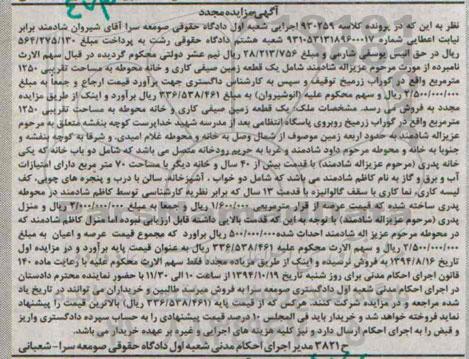 آگهی مزایده مجدد
نظر به این که در پرونده کلاسه ۹۳۰۲۵۹ اجرایی شعبه اول دادگاه حقوقی صومعه سرا آقای شیروان شادمند برابر
نیابت اعطایی شماره ۹۳۱۰۵۳۱۳۱۸۹۶۰۰۰۱۷ شعبه هشتم دادگاه حقوقی رشت به پرداخت مبلغ ۵۶۴/۲۷۵/۱۳۰
ریال در حق الیاس یوسفی شارمی و مبلغ ۲۸/۲۱۳/۷۵۶ ریال نیم عشر دولتی محکوم گردیده در قبال سهم الارث
نامبرده از مورث مرحوم عزیزاله شادمند شامل یک قطعه زمین صیفی کاری و خانه محوطه به مساحت تقریبی ۱۲۵۰
مترمربع واقع در گوراب زرمیخ توقیف و سپس به کارشناس داگستری جهت برآورد قیمت ارجاع و جمعا به مبلغ
۲/۵۰۰/۰۰۰/۰۰۰ ریال و سهم محکوم علیه (انوشیروان) به مبلغ ۳۳۶/۵۳۸/۴۶۱ ریال برآورد و اینک از طریق مزایده
مجدد به فروش می رسد. مشخصات ملک، یک قطعه زمین صیفی کاری و خانه محوطه به مساحت تقریبی ۱۲۵۰
مترمربع واقع در گوراب زرمیخ روبروی پاسگاه انتظامی بعد از مدرسه شهید خداپرست کوچه بنفشه متعلق به مرحوم
عزیزاله شادمند به حدود اربعه زمین موصوف از شمال وصل به خانه و محوطه غلام امیدی، و شرقا به کوچه بنفشه و
جنوبا به خانه و محوطه مرحوم داود شادمند و غربا به حریم رودخانه متصل می باشد که شامل دو باب خانه که یکی
خانه پدری (مرحوم عزیزاله شادمند) با قدمت بیش از ۴۰ سال و خانه دیگر با مساحت ۷۰ متر مربع دارای امتیازات
آب و برق و گاز به نام کاظم شادمند می باشد که شامل دو خواب ، آشپزخانه، سالن با درب و پنجره های چوبی، کف
لیسه کاری، نما کاری با سقف گالوانیزه با قدمت ۱۳ سال که برابر نظریه کارشناسی توسط کاظم شادمند در محوطه
پدری ساخته شده که قیمت عرصه از قرار مترمربعی ۱/۶۰۰/۰۰۰ ریال و جمعا به مبلغ ۲/۰۰۰/۰۰۰/۰۰۰ ریال و منزل
پدری (مرحوم عزیزاله شادمند) با توجه به این که قدمت بالایی داشته قابل ارزیابی نبوده اما منزل کاظم شادمند که
در محوطه مرحوم عزیز اله شادمند احداث شده ۵۰۰/۰۰۰/۰۰۰ ریال برآورد که مجموع قیمت عرصه و اعیان به مبلغ
۲/۵۰۰/۰۰۰/۰۰۰ ریال و سهم الارث محکوم علیه ۳۳۶/۵۳۸/۴۶۱ ریال به عنوان قیمت پایه برآورد و در مزایده اول
تاریخ ۱۳۹۴/۸/۱۶ به فروش نرسیده و اینک از طریق مزایده مجدد فقط سهم الارث محکوم علیه با رعایت ماده ۱۴۰
قانون اجرای احکام مدنی برای روز شنبه تاریخ ۱۳۹۴/۱۰/۱۹ از ساعت ۱۰ الی ۱۱/۳۰ با حضور نماینده محترم دادستان
در اجرای احکام مدنی شعبه اول دادگستری صومعه سرا به فروش میرسد طالبین و خریداران می توانند در تاریخ یاد
شده مراجعه و در مزایده شرکت کنند. هرکس که از قیمت پایه (۳۳۶/۵۳۸/۴۶۱ ریال) بالاترین قیمت را پیشنهاد
نماید فروخته خواهد شد و خریدار باید فی المجلس ۱۰ درصد قیمت پیشنهادی را به حساب سپرده دادگستری واریز
و قبض را به اجرای احکام ارسال دارد و نیز کلیه هزینه های اجرایی و غیره بر عهده خریدار می باشد.
ح ۳۸۲۱ مدیر اجرای احکام مدنی شعبه اول دادگاه حقوقی صومعه سرا-شعبانی